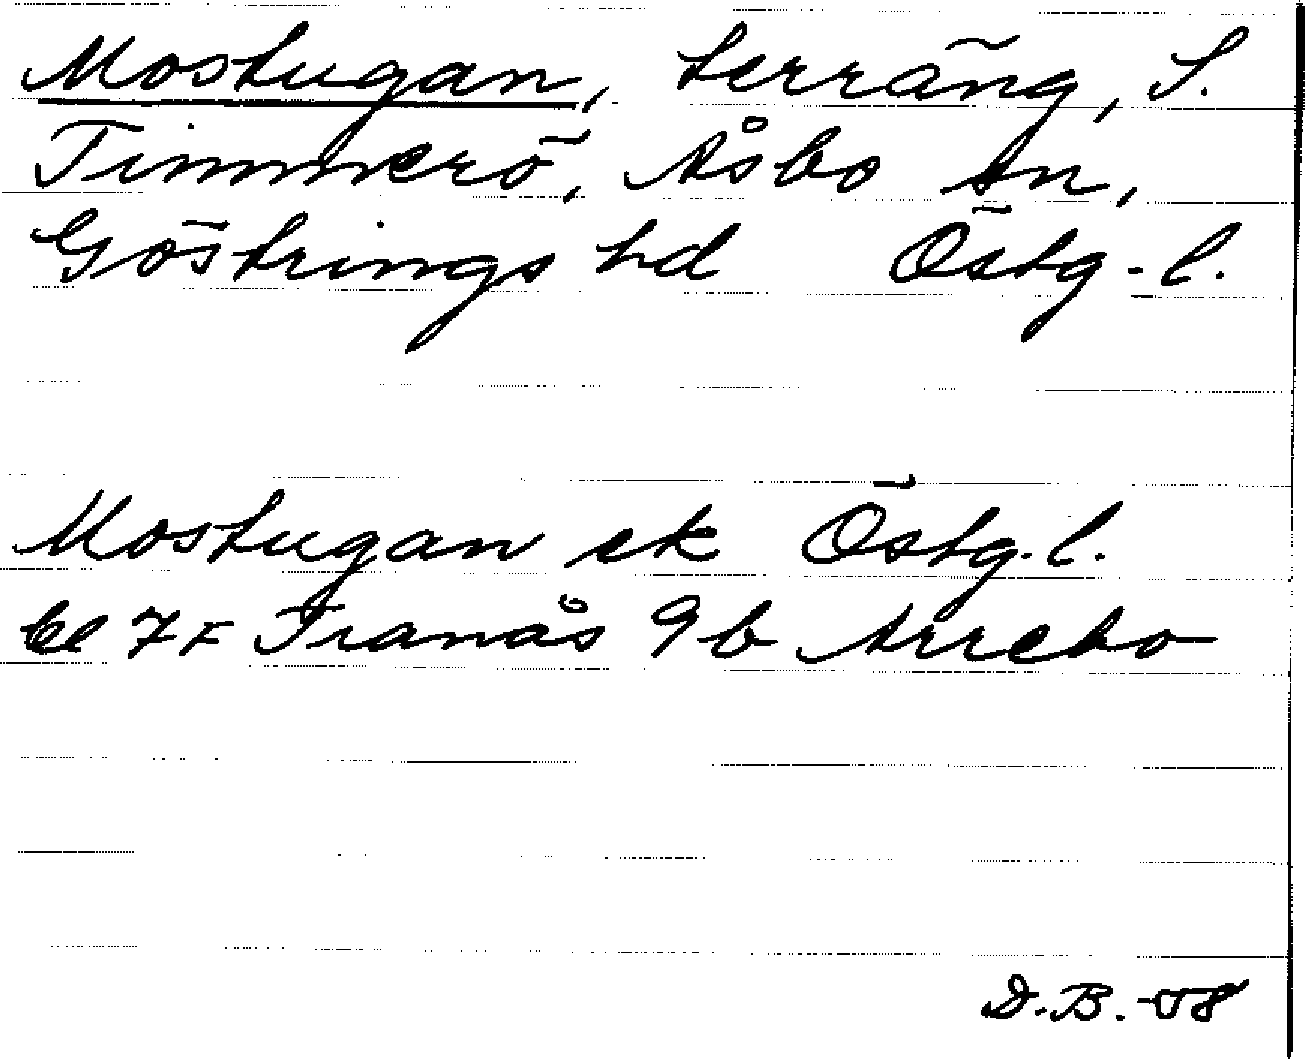 Mostugan, terräng, S.
Timmerö, Åsbo sn,
Göstrings hd Östg-l.
Mostugan ek Östg.l.
bl 7F Tranås 9b Arrebo
D.B.-58